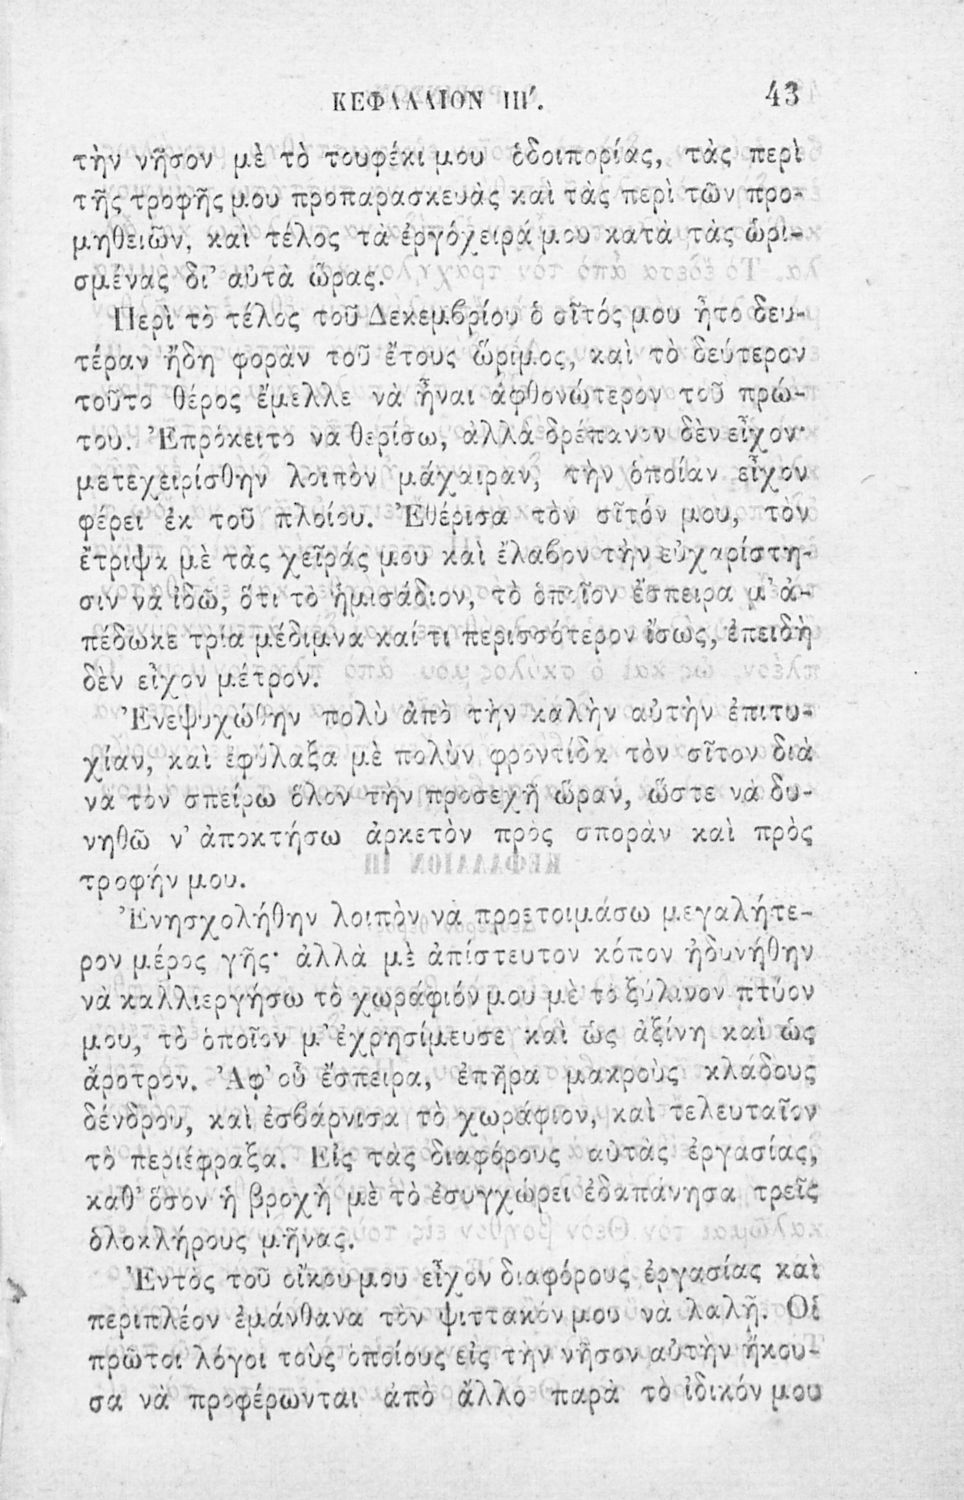 ΚΕΦΑΛΑΙΟΝ ΙΙΙ'. 43
τὴν νῆσον μὲ τὸ τουφέκι μου ὁδοιπορίας, τὰς περὶ
τῆς τροφῆς μου προπαρασκευὰς καὶ τὰς περὶ τῶν προ-
μηθειῶν, καὶ τέλος τὰ ἐργόχειρά μου κατὰ τὰς ὡρι-
σμένας δι' αὐτὰ ὥρας.
Περὶ τὸ τέλος τοῦ Δεκεμβρίου ὁ σῖτός μου ἦτο δευ-
τέραν ἤδη φορὰν τοῦ ἔτους ὥριμος, καὶ τὸ δεύτερον
τοῦτο θέρος ἔμελλε νὰ ἦναι ἀφθονώτερον τοῦ πρώ-
του. Ἐπρόκειτο νὰ θερίσω, ἀλλὰ δρέπανον δὲν εἶχον·
μετεχειρίσθην λοιπὸν μάχαιραν, τὴν ὁποίαν εἶχον
φέρει ἐκ τοῦ πλοίου. Ἐθέρισα τὸν σῖτόν μου, τὸν
ἔτριψα μὲ τὰς χεῖράς μου καὶ ἔλαβον τὴν εὐχαρίστη-
σιν νὰ ἰδῶ, ὅτι τὸ ἡμισάδιον, τὸ ὁποῖον ἔσπειρα μ' ἀ-
πέδωκε τρία μέδιμνα καί τι περισσότερον ἴσως, ἐπειδὴ
δὲν εἶχον μέτρον.
Ἐνεψυχώθην πολὺ ἀπὸ τὴν καλὴν αὐτὴν ἐπιτυ-
χίαν, καὶ ἐφύλαξα μὲ πολὺν φροντίδα τὸν σῖτον διὰ
νὰ τὸν σπείρω ὅλον τὴν προσεχῆ ὥραν, ὥστε νὰ δυ-
νηθῶ ν' ἀποκτήσω ἀρκετὸν πρὸς σπορὰν καὶ πρὸς
τροφήν μου.
Ἐνησχολήθην λοιπὸν νὰ προετοιμάσω μεγαλήτε-
ρον μέρος γῆς· ἀλλὰ μὲ ἀπίστευτον κόπον ἠδυνήθην
νὰ καλλιεργήσω τὸ χωράφιόν μου μὲ τὸ ξύλινον πτύον
μου, τὸ ὁποῖον μ' ἐχρησίμευσε καὶ ὡς ἀξίνη καὶ ὡς
ἄροτρον. Ἀφ' οὗ ἔσπειρα, ἐπῆρα μακροὺς κλάδους
δένδρου, καὶ ἐσβάρνισα τὸ χωράφιον, καὶ τελευταῖον
τὸ περιέφραξα. Εἰς τὰς διαφόρους αὐτὰς ἐργασίας,
καθ' ὅσον ἡ βροχὴ μὲ τὸ ἐσυγχώρει ἐδαπάνησα τρεῖς
ὁλοκλήρους μῆνας.
Ἐντὸς τοῦ οἴκου μου εἶχον διαφόρους ἐργασίας καὶ
περιπλέον ἐμάνθανα τὸν ψιττακόν μου νὰ λαλῇ. Οἱ
πρῶτοι λόγοι τοὺς ὁποίους εἰς τὴν νῆσον αὐτὴν ἤκου-
σα νὰ προφέρωνται ἀπὸ ἄλλο παρὰ τὸ ἰδικόν μου